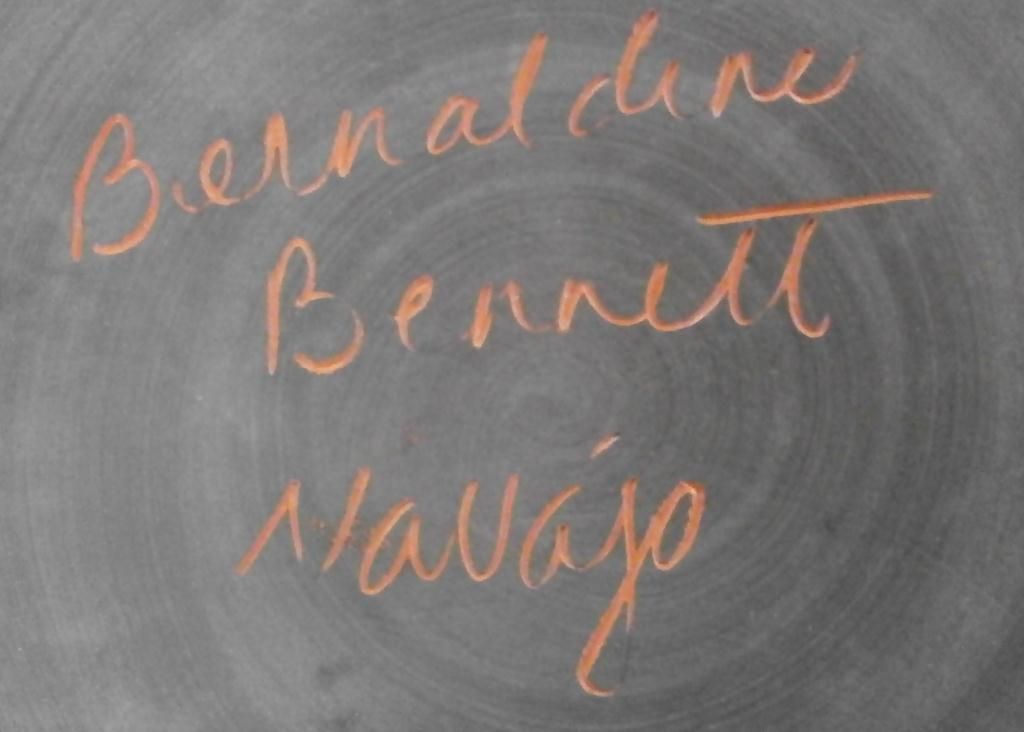 Bernaldine
Bennett
Navajo